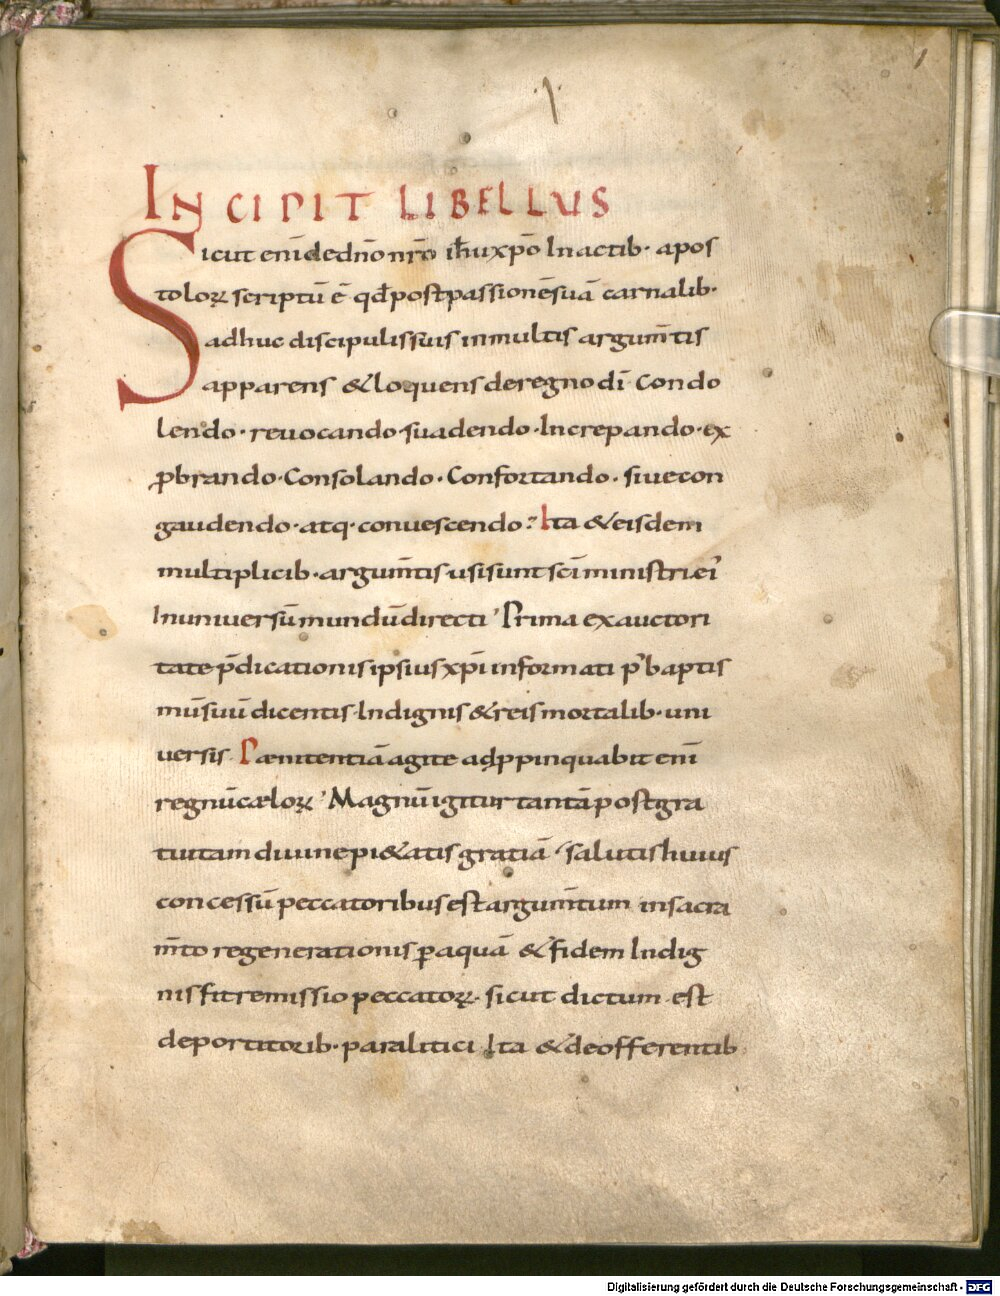 1
INCIPIT LIBELLUS
Sicut enī de dn̄o nr̄o ih̄u xp̄o In actib· apos
toloꝝ scriptū ē qđ post passionē suā carnalib·
adhuc discipulis suis in multis argum̄tis
apparens & loquens de regno dī· Condo
lendo· reuocando· suadendo· Increpando· ex
ꝓbrando· Consolando· Confortando· siue con
gaudendo· atq· conuescendo· Ita & eisdem
multiplicib· argum̄tis· usi sunt sc̄i ministri ei'
In uniuersū mundū directi· Prima ex auctori
tate p̄dicationis ipsius xp̄i informati p' baptis
mū suū dicentis· Indignis & reis mortalib· uni
uersis· Paenitentiā agite adꝓpinquabit enī
regnū cęloꝝ· Magnū igitur tantā post gra
tuitam diuinę pi&atis gratiā· salutis huius
concessū peccatoribus est argum̄tum in sacra
m̄to regenerationis ꝑ aquā & fidem Indig
nis fit remissio peccatoꝝ· sicut dictum est
de portitorib· paralitici Ita & de offerentib·
Digitalisierung gefördert durch die Deutsche Forschungsgemeinschaft - DFG